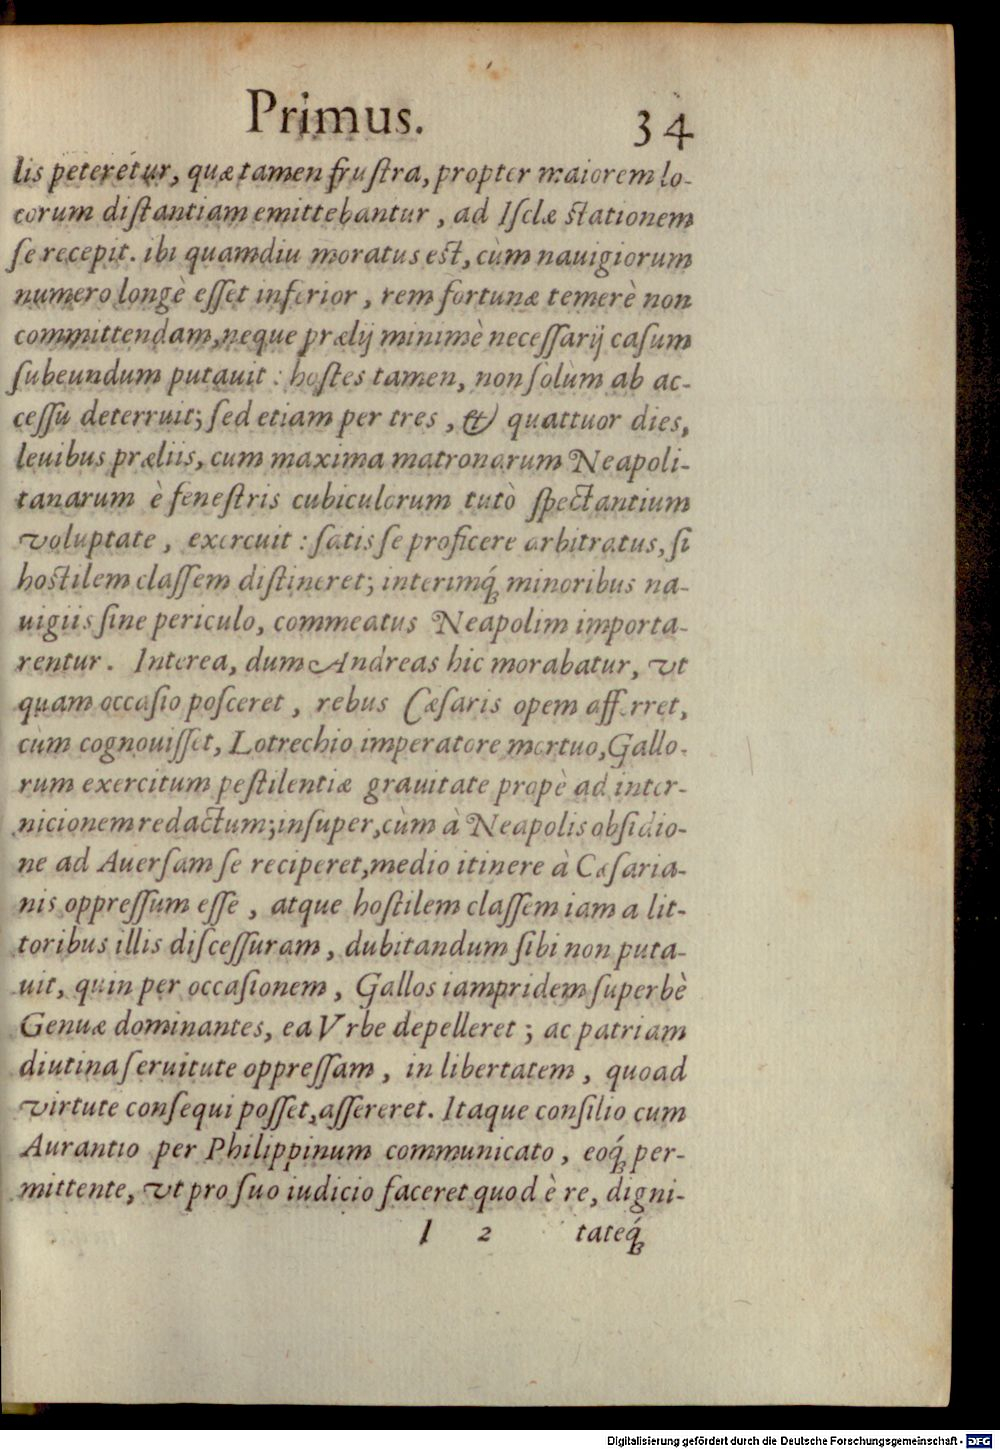 Primus. 34
lis peteretur, quæ tamen frustra, propter maiorem lo-
corum distantiam emittebantur, ad Isclæ stationem
se recepit. ibi quamdiu moratus est, cùm nauigiorum
numero longè esset inferior, rem fortunæ temerè non
committendam, neque prælij minimè necessarij casum
subeundum putauit: hostes tamen, non solùm ab ac-
cessu deterruit; sed etiam per tres, & quattuor dies,
leuibus præliis, cum maxima matronarum Neapoli-
tanarum è fenestris cubiculorum tutò spectantium
voluptate, exercuit: satis se proficere arbitratus, si
hostilem classem distineret; interimq́; minoribus na-
uigiis sine periculo, commeatus Neapolim importa-
rentur. Interea, dum Andreas hic morabatur, vt
quam occasio posceret, rebus Cæsaris opem afferret,
cùm cognouisset, Lotrechio imperatore mortuo, Gallo-
rum exercitum pestilentiæ grauitate propè ad inter-
nicionem redactum; insuper, cùm à Neapolis obsidio-
ne ad Auersam se reciperet, medio itinere à Cæsaria-
nis oppressum esse, atque hostilem classem iam a lit-
toribus illis discessuram, dubitandum sibi non puta-
uit, quin per occasionem, Gallos iampridem superbè
Genuæ dominantes, ea Vrbe depelleret; ac patriam
diutina seruitute oppressam, in libertatem, quoad
virtute consequi posset, assereret. Itaque consilio cum
Aurantio per Philippinum communicato, eoq́; per-
mittente, vt pro suo iudicio faceret quod è re, digni-
I 2 tateq́;
Digitalisierung gefördert durch die Deutsche Forschungsgemeinschaft - DFG